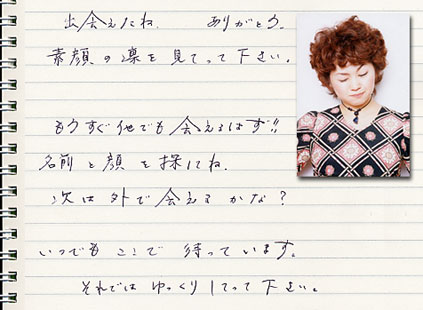 出会えたね。 ありがとう。
素顔の凜を見てって下さい。
もうすぐ他でも会えるはず!!
名前と顔を探してね。
次は外で会えるかな?
いつでもここで待っています。
それではゆっくりしてって下さい。